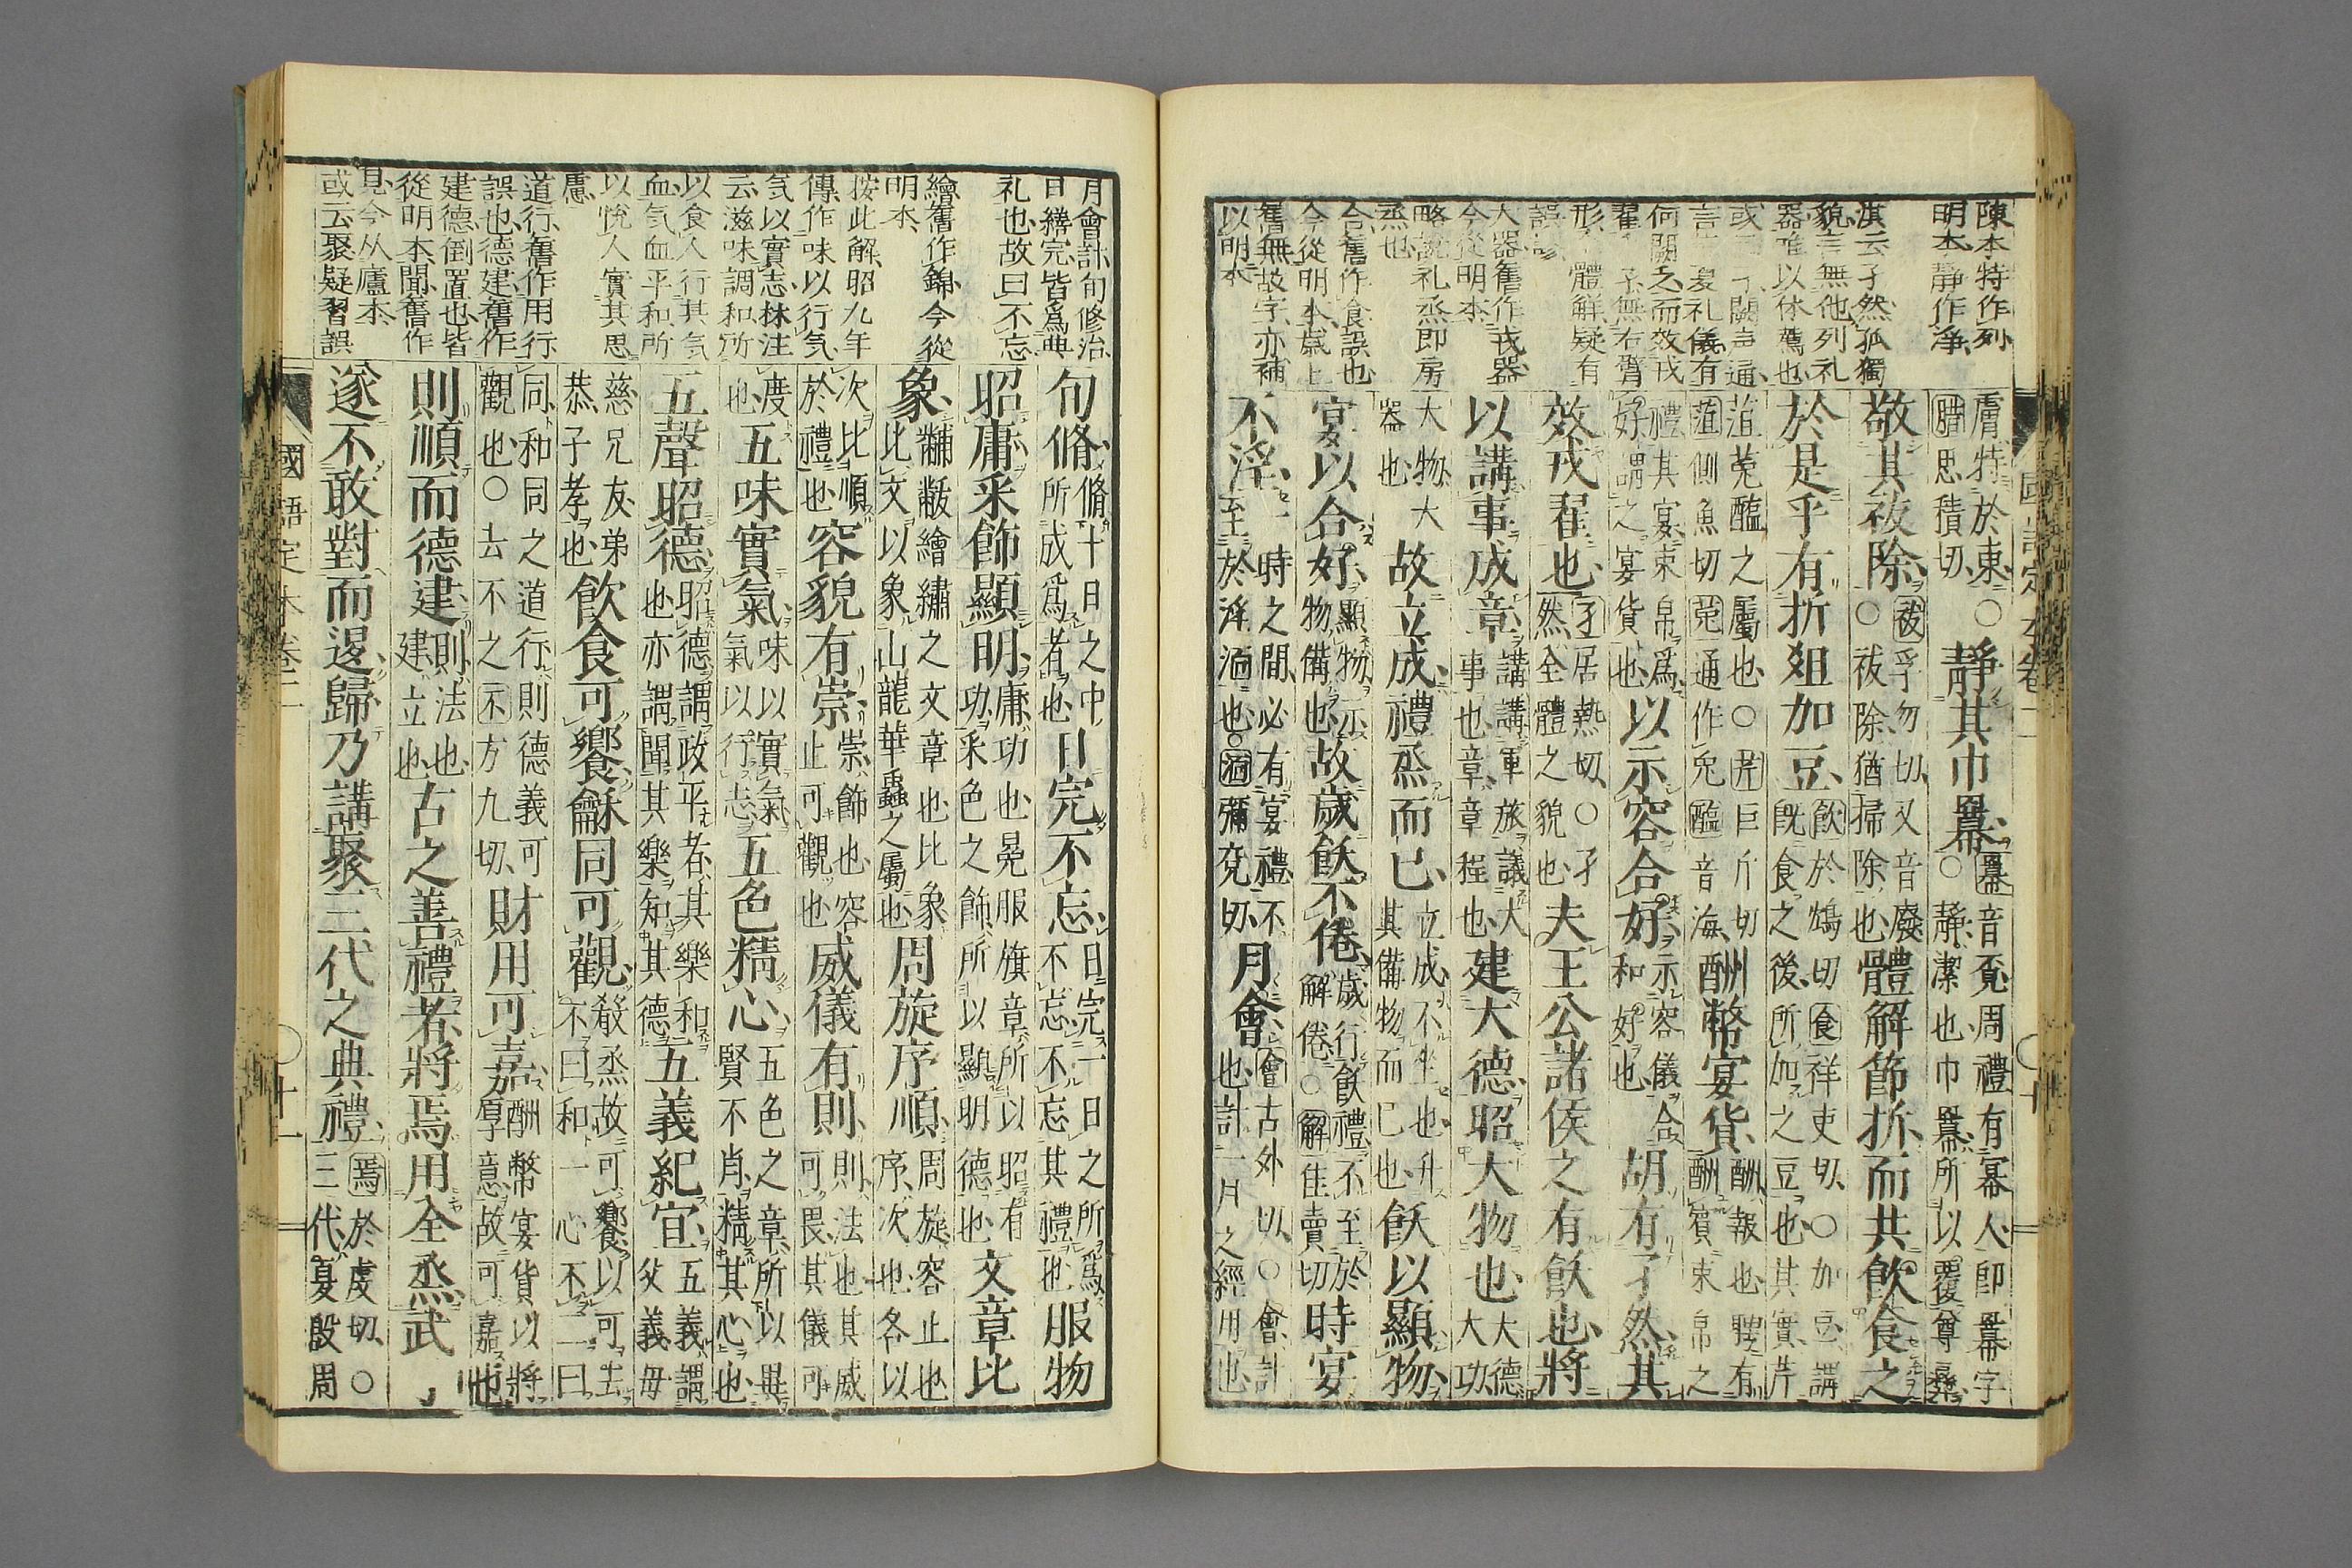 陳本特作列
明本靜作淨
淇云孑然孤獨
貌言無他列礼
器唯以体薦也
何闕之而效戎
大器舊作戎器
今從明本
略説礼烝即房
烝也
合舊作食誤也
今從明本歳上
舊無故字亦補
以明本
膚特於東○靜其巾冪冪音覓周禮有冪人卽冪字
腊思積切○靜潔也巾冪所以覆尊彝
敬其祓除祓孚勿切又音廢○祓除猶掃除也體解節折而共飲食之
於是乎有折俎加豆飲於鴆切食祥吏切○加豆謂旣食之後所加之豆也其實芹
菹菟醢之屬也○芹巨斤切菹側魚切菟通作兔醢音海酬幣宴貨酬報也聘有酬賓束帛之
禮其宴束帛爲好謂之宴貨也以示容合好示容儀合和好也胡有孑然其
效戎翟也孑居熱切○孑然全體之貌也夫王公諸侯之有飫也將
以講事成章講講軍旅議大事也章章程也建大德昭大物也大德大功
大物大器也故立成禮烝而已立成不坐也升其備物而已也飫以顯物
宴以合好顯物示物備也故歲飫不倦歲行飫禮不至於解倦○解佳賣切時宴
不淫一時之間必有宴禮不至於淫湎也○湎彌兗切月會會古外切○會計也計一月之經用也
國語定本卷二
○十
月會計旬修治
日繕完皆爲典
礼也故曰不忘
繪舊作錦今從
明本
按此解昭九年
傳作味以行気
気以實志林注
云滋味調和所
以食人行其気
血気血平和所
以悅人實其思
慮
道行舊作用行
誤也德建舊作
建德倒置也皆
從明本聞舊作
見今从廬本
或云聚疑習誤
旬脩脩十日之中所成爲者也日完不忘日完一日之所爲不忘不忘其禮也服物
昭庸采飾顯明庸功也冕服旗章所以昭有功采色之飾所以顯明德也文章比
象黼黻繪繡之文章也比象比文以象山龍華蟲之屬也周旋序順周旋容止也序次也各以
次比順於禮也容貌有崇崇飾也容止可觀也威儀有則則法也其威可畏其儀可
度也五味實氣味以實氣氣以行志五色精心五色之章所以異賢不肖精其心也
五聲昭德昭德謂政平者其樂和也亦謂聞其樂知其德五義紀宜五義謂父義母
慈兄友弟恭子孝也飲食可饗龢同可觀殽烝故可饗以可去不曰和一心不二曰
同和同之道行則德義可觀也○去不之不方九切財用可嘉酬幣宴貨以將厚意故可嘉也
則順而德建則法也建立也古之善禮者將焉用全烝武子
遂不敢對而退歸乃講聚三代之典禮焉於虔切○三代夏殷周
國語定本卷二
○十一